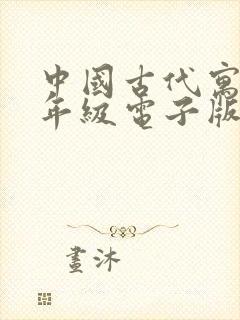 中國古代寓
年級電子版
畫沐